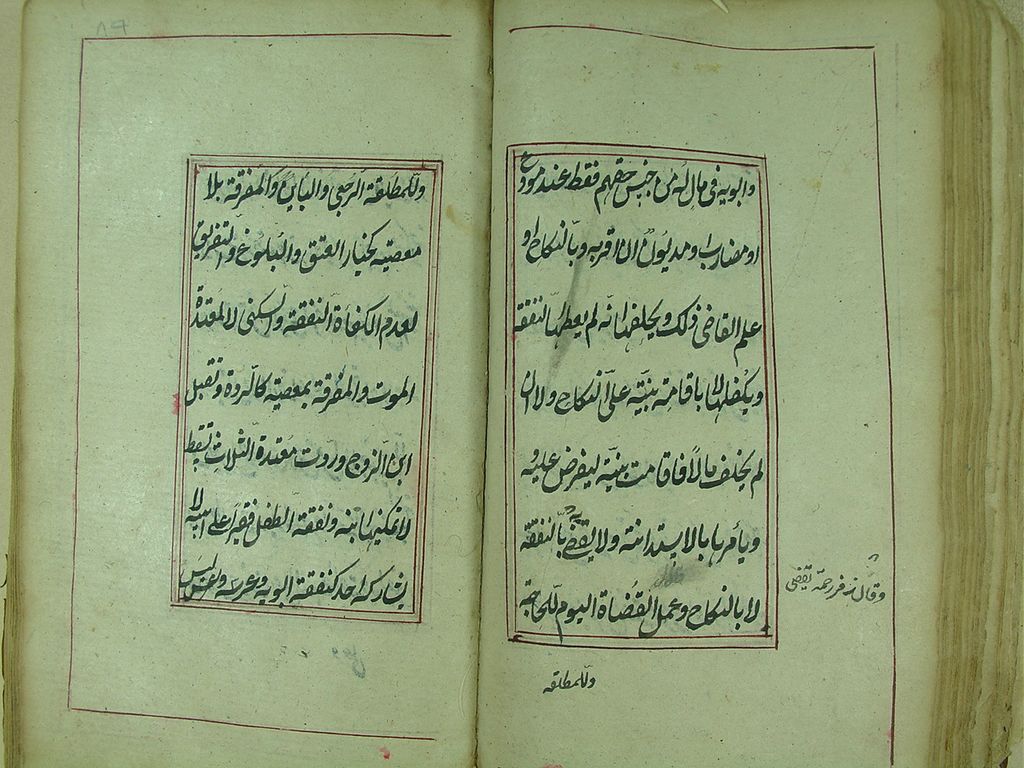 وابويه في مال له من جنس حقهم فقط عند مودع
او مضارب او مديون ان اقر به وبالنكاح او
علم القاضي ذلك ويحلفها انه لم يعطها النفقة
ويكفلها لا باقامة بينة على النكاح ولا ان
لم يخلف مالا فاقامت بينة ليفرض عليه
ويأمرها بالاستدانة ولا يقضى به بالنفقة
لا بالنكاح وعمل القضاة اليوم للحاجة
وقال زفر رحمه يقضى
وللمطلقه
وللمطلقة الرجعي والباين والمفرقة بلا
معصيته كخيار العتق والبلوغ والتفريق
لعدم الكفاة النفقة والسكنى لا لمعتدة
الموت والمفرقة بمعصيته كالردة وتقبل
ابن الزوج وردت معتدة الثلاث تسقط
لا تمكينها ابنه ونفقة الطفل فقيرا على ابيه لا
يشاركه احد كنفقة ابويه وعرسه وليس